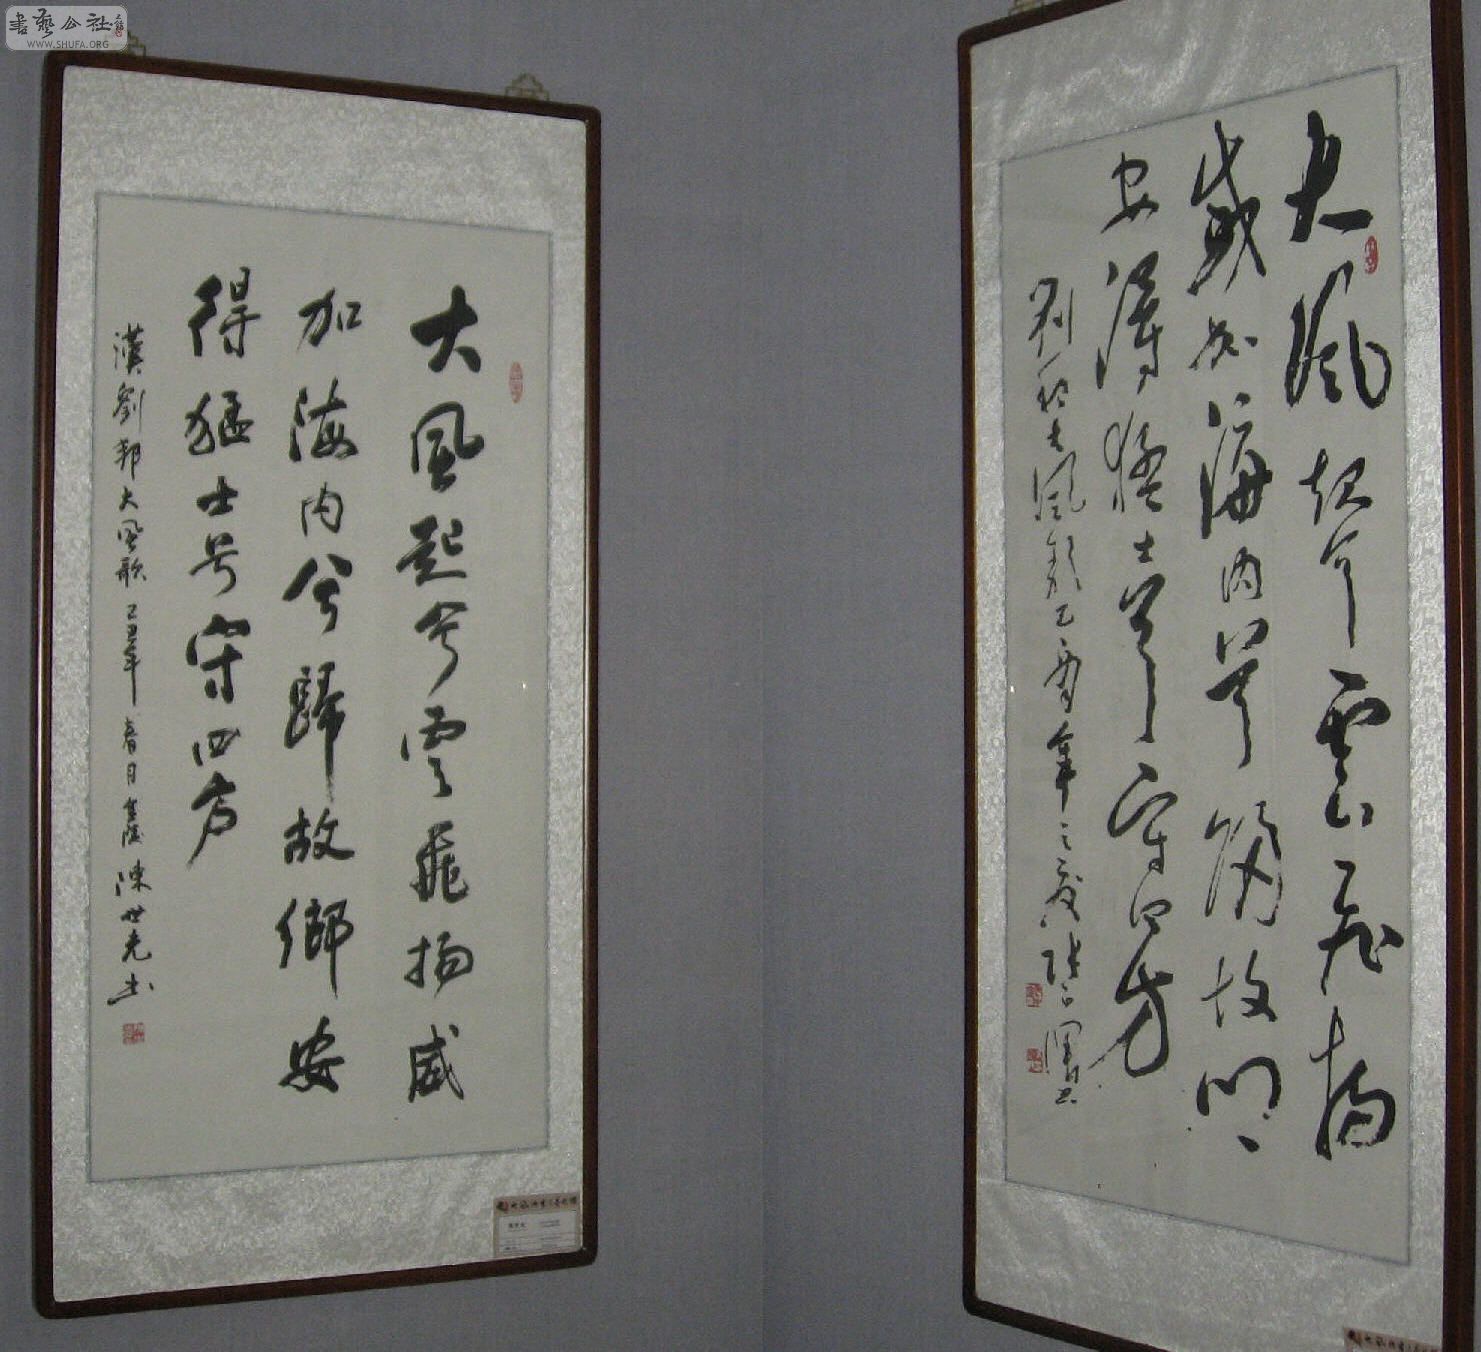 書藝公社
WWW.SHUFA.ORG
大風起兮雲飛揚威
加海内兮歸故鄉安
得猛士兮守四方
漢劉邦大風歌己丑年春月金陵陳世光書
大風起兮雲飛揚
威加海内兮歸故鄉
安得猛士兮守四方
劉邦大風歌乙酉年之夏